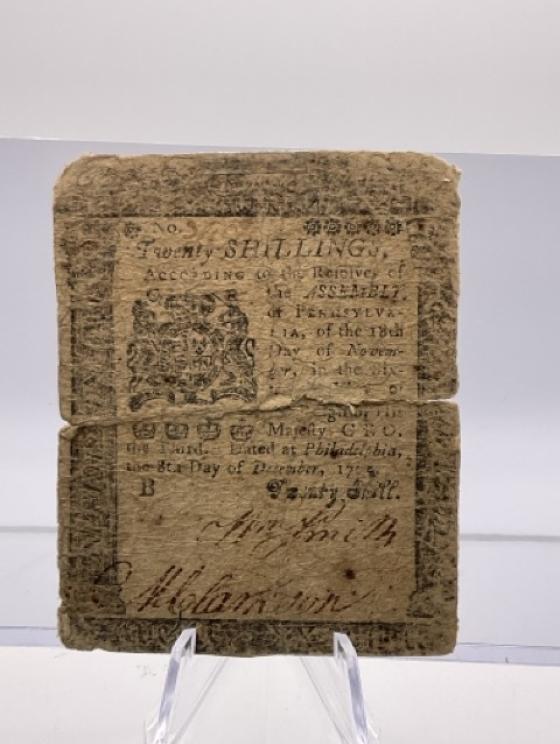 No.
Twenty SHILLINGS,
ACCORDING to the Resolves of
G R the ASSEMBLY
of PENNSYLVA-
NIA, of the 18th
Day of Novem-
ber, in the Six-
of
Reign, His
Majesty GEO.
the Third. Dated at Philadelphia,
the 8th Day of December, 1775.
B Twenty Shill.
Smith